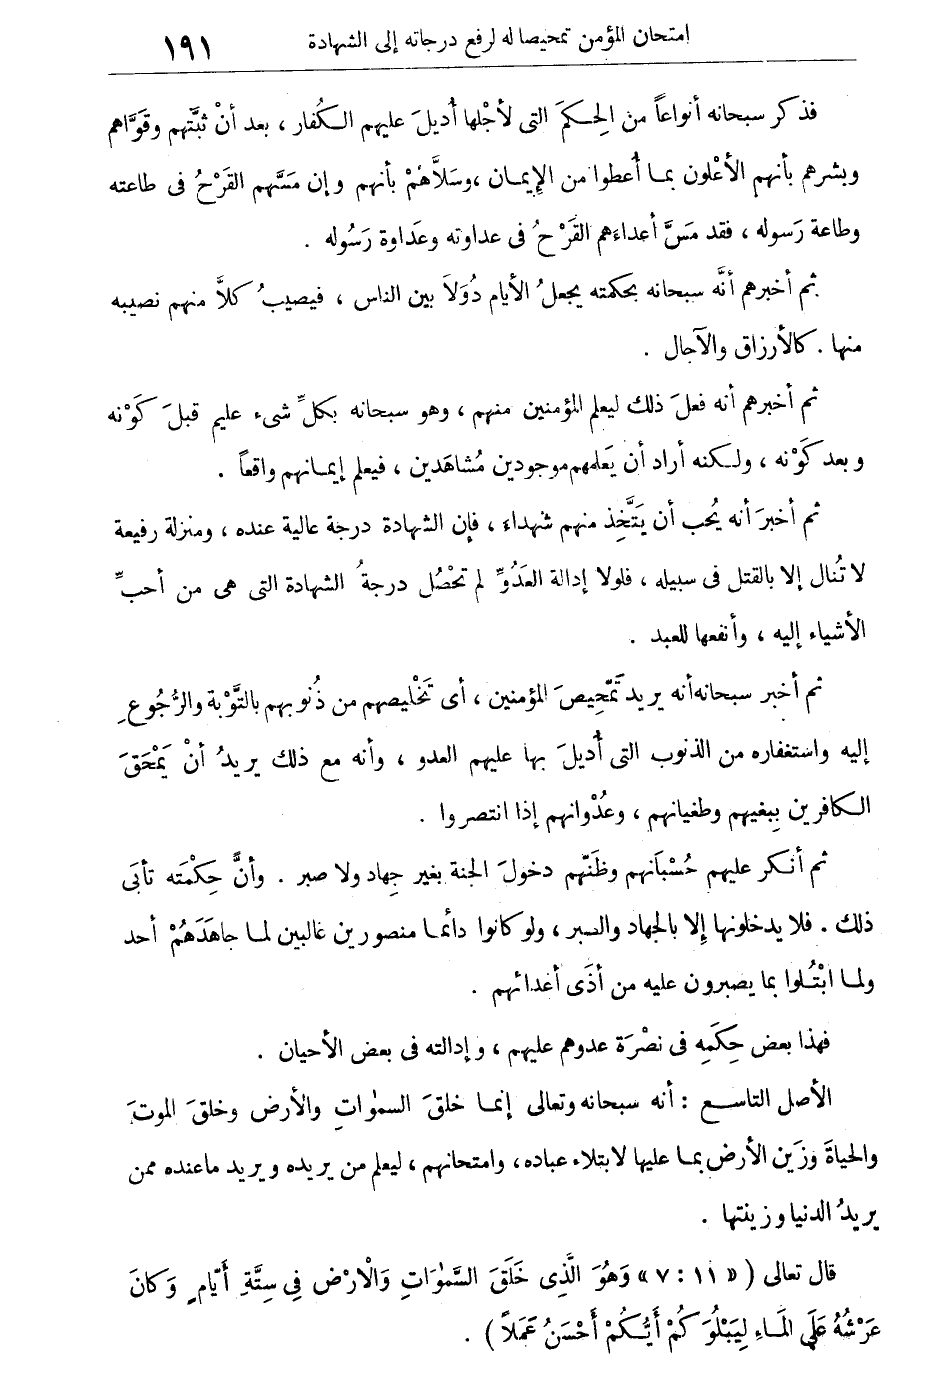 امتحان المؤمن تمحيصا له لرفع درجاته إلى الشهادة ١٩١
فذكر سبحانه أنواعاً من الحِكمَ التى لأجْلها أُديلَ عليهم الكُفار ، بعد أنْ ثبَّتهم وقوَّاهم
وبشرهم بأنهم الأعْلون بما أُعطوا من الإِيمان ، وسَلاَّهُمْ بأنهم وإن مَسَّهم القَرْحُ فى طاعته
وطاعة رَسوله ، فقد مَسَّ أعداءَهم القَرْحُ فى عداوته وعَداوة رَسُوله .
ثم أخبرهم أنَّه سبحانه بحكمته يجعلُ الأيام دُوَلاَ بين الناس ، فيصيبُ كلاًّ منهم نصيبه
منها . كالأرزاق والآجال .
ثم أخبرهم أنه فعلَ ذلك ليعلم المؤمنين منهم ، وهو سبحانه بكلِّ شىء عليم قبلَ كَوْنه
وبعد كَوْنه ، ولكنه أراد أن يَعلمهم موجودين مُشاهَدين ، فيعلم إيمانهم واقعاً .
ثم أخبرَ أنه يُحب أن يَتَّخِذ منهم شهداء ، فإن الشهادة درجة عالية عنده ، ومنزلة رفيعة
لا تُنال إلا بالقتل فى سبيله ، فلولا إدالة العَدُوِّ لم تحْصُل درجةُ الشهادة التى هى من أحبِّ
الأشياء إليه ، وأنفعها للعبد .
ثم أخبر سبحانه أنه يريد تَمْحِيصَ المؤمنين ، أى تَخْليصهم من ذُنوبهم بالتَّوْبة والرُّجُوعِ
إليه واستغفاره من الذنوب التى أُديلَ بها عليهم العدو ، وأنه مع ذلك يريدُ أنْ يَمْحَقَ
الكافرين بِبغيهم وطغيانهم ، وعُدْوانهم إذا انتصروا .
ثم أنكر عليهم حُسْبَانهم وظَنّهم دخولَ الجنة بغير جِهاد ولا صبر . وأنَّ حِكْمَته تأبَى
ذلك . فلا يدخلونها إِلا بالجهاد والصبر ، ولو كانوا دائما منصورين غالبين لما جاهَدَهُمْ أحد
ولما ابْتُلوا بما يصبرون عليه من أذَى أعدائهم .
فهذا بعض حِكَمِه فى نصْرَة عدوهم عليهم ، وإدالته فى بعض الأحيان .
الأصل التاسع : أنه سبحانه وتعالى إنما خلقَ السموٰاتِ والأرض وخلقَ الموتَ
والحياةَ وزَين الأرض بما عليها لابتلاء عباده ، وامتحانهم ، ليعلم من يريده ويريد ما عنده ممن
يريدُ الدنيا وزينتها .
قال تعالى ( « ١١ : ٧ » وَهُوَ الَّذِى خَلَقَ السَّمٰوَاتِ وَالْارْضَ فِى سِتَّةِ أَيَّامٍ وَكَانَ
عَرْشُهُ عَلَى الْمَاءِ لِيَبْلُوَكُمْ أَيُّكُمْ أَحْسَنُ عَمَلاً ) .